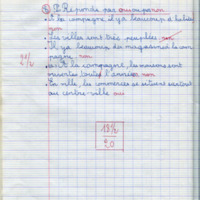 ② Réponds par oui ou par non
• A la campagne, il y a beaucoup d'habita
non
• Les villes sont très peuplées. non
• Il y a beaucoup de magasins à la cam
pagne. non
• A la campagne, les maisons sont
toutes l'année non
• En ville, les commerces se trouvent surtout
au centre-ville oui
18½
20